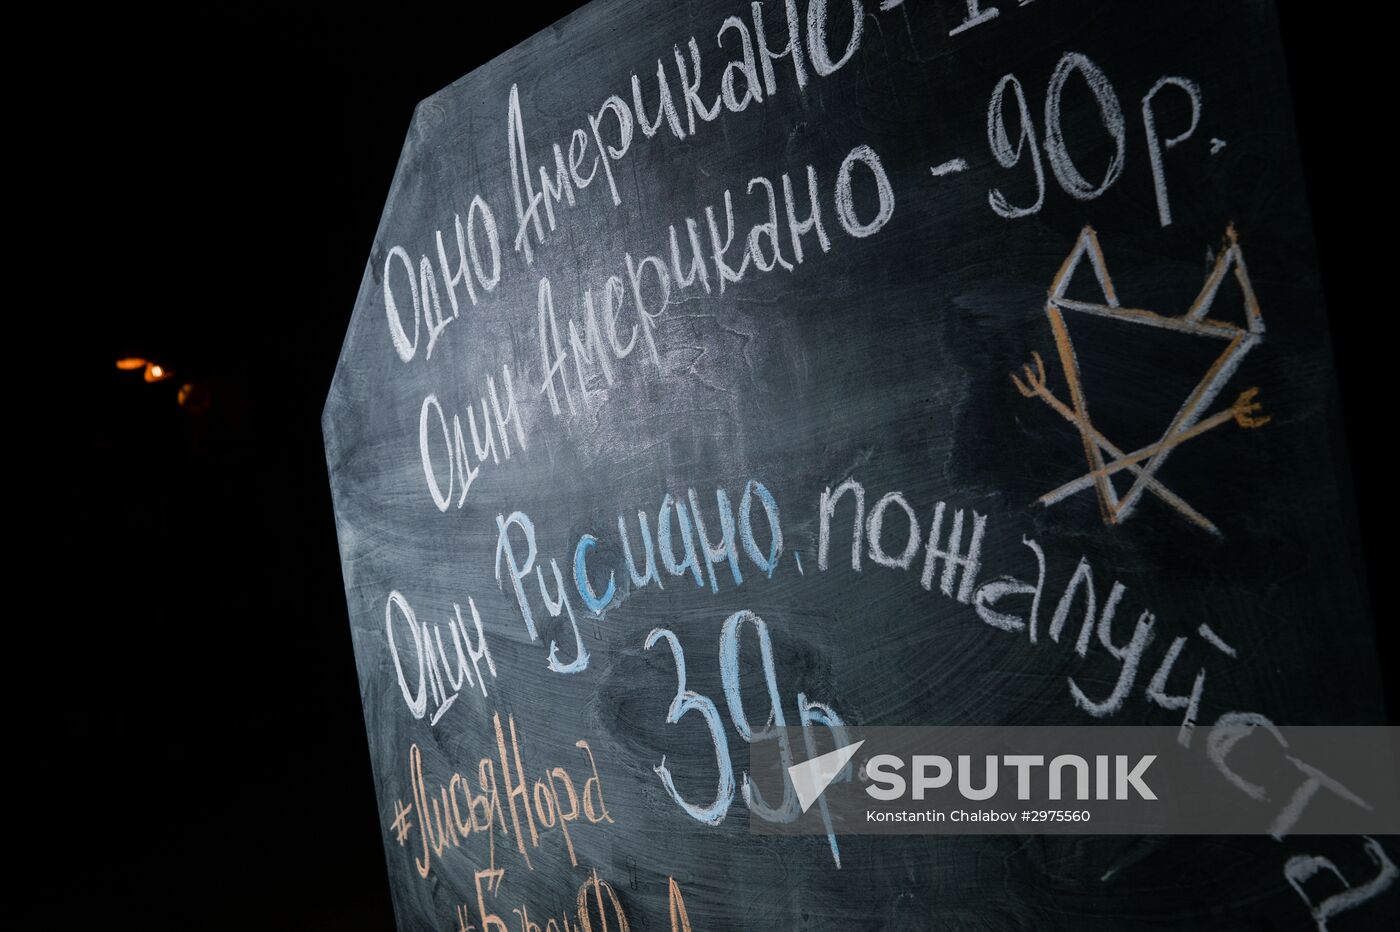 Одно Американо -
Один Американо - 90р.
Один Русиано, пожалуйста
39р.
#ЛисьяНора
SPUTNIK
Konstantin Chalabov #2975560